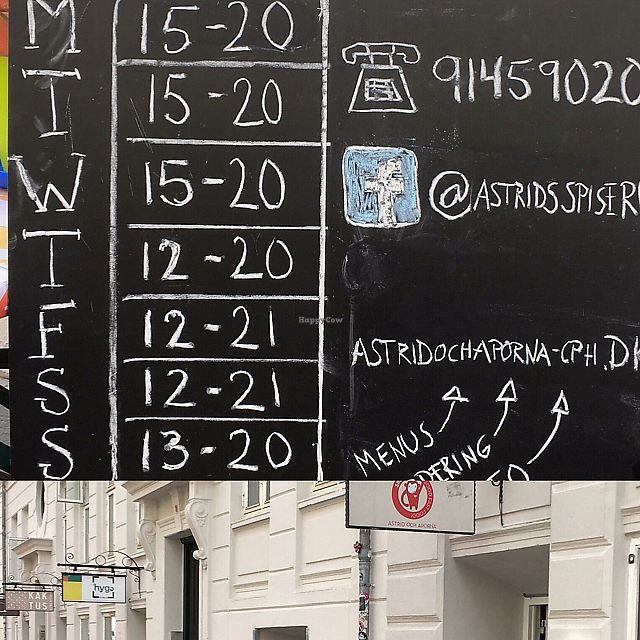 M 15-20
T 15-20
W 15-20
T 12-20
F 12-21
S 12-21
S 13-20
9145902
@ASTRIDSSPISER
ASTRIDOCHAPORNA-CPH.DK
MENUS
HappyCow
ASTRID OCH APORNA
hyga
KAK
TUS